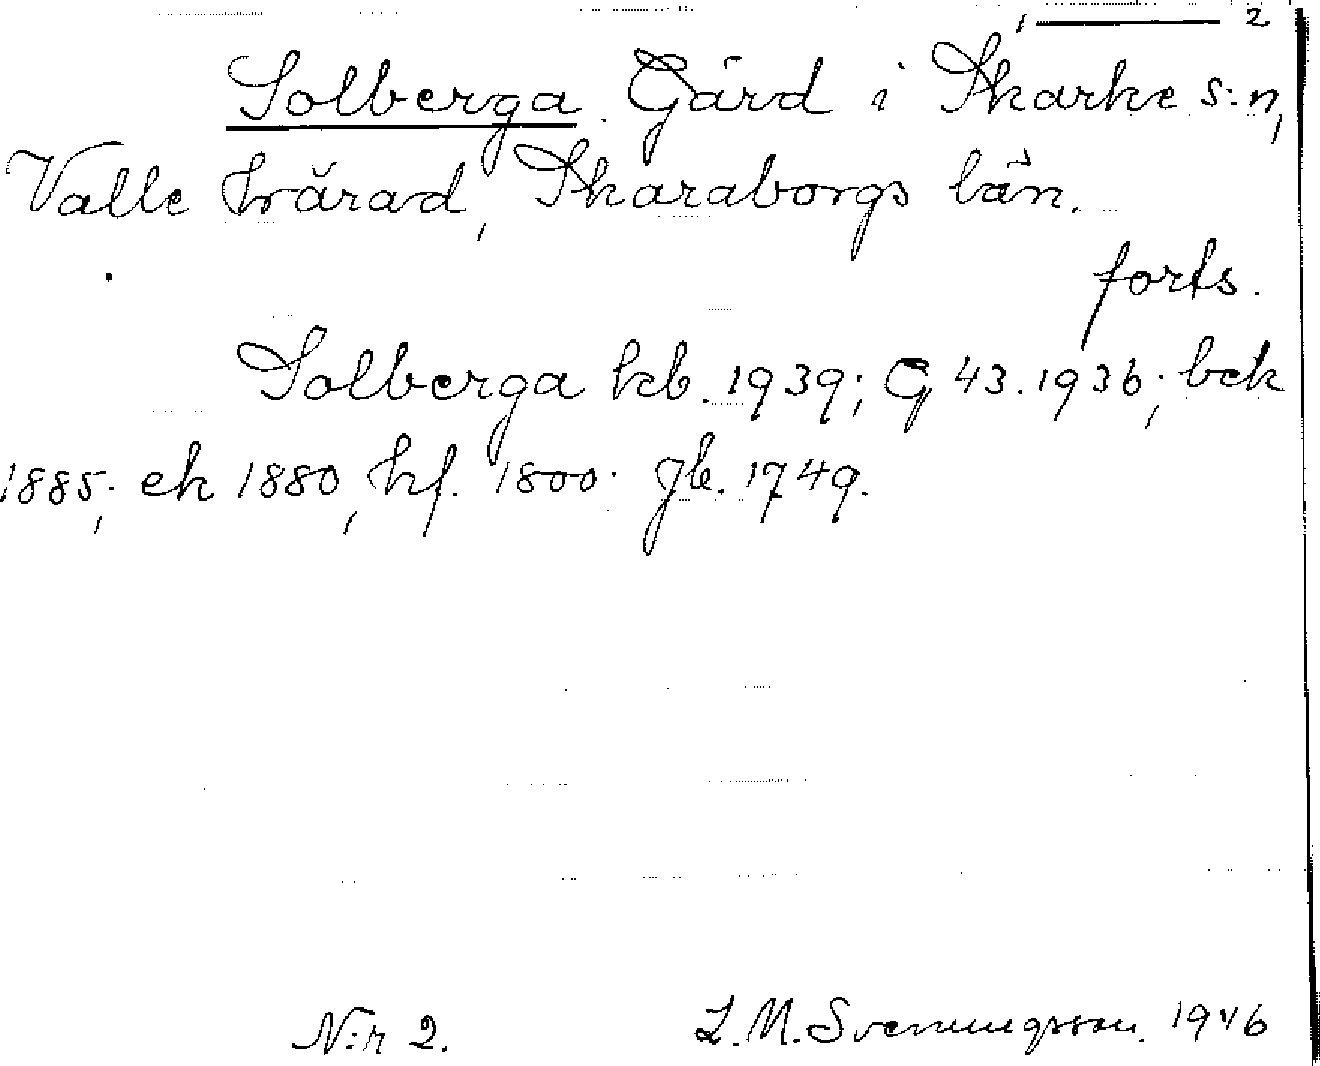 2
Solberga. Gård i Skarke s:n,
Valle härad, Skaraborgs län.
forts.
Solberga hb. 1939; G 43. 1936; bek
1885; ek 1880, hf. 1800. jb. 1749.
N:r 2. L. M. Svenungsson. 1946